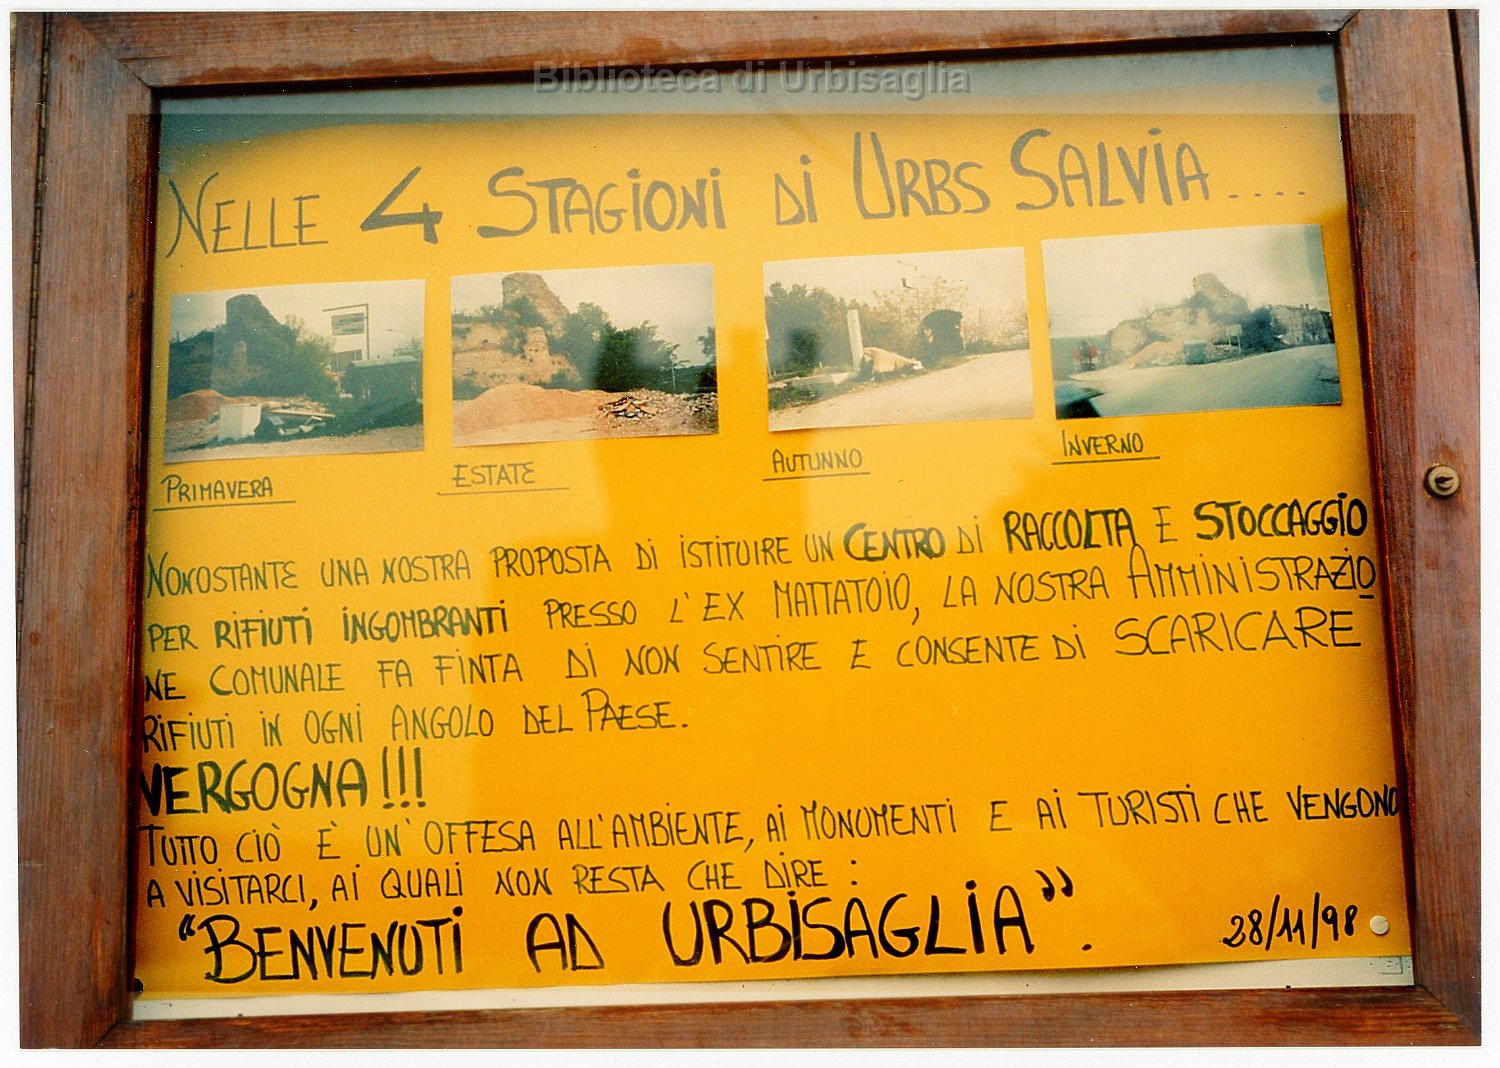 Biblioteca di Urbisaglia
NELLE 4 STAGIONI DI URBS SALVIA....
PRIMAVERA
ESTATE
AUTUNNO
INVERNO
NONOSTANTE UNA NOSTRA PROPOSTA DI ISTITUIRE UN CENTRO DI RACCOLTA E STOCCAGGIO
PER RIFIUTI INGOMBRANTI PRESSO L'EX MATTATOIO, LA NOSTRA AMMINISTRAZIO
NE COMUNALE FA FINTA DI NON SENTIRE E CONSENTE DI SCARICARE
RIFIUTI IN OGNI ANGOLO DEL PAESE.
VERGOGNA!!!
TUTTO CIÒ È UN'OFFESA ALL'AMBIENTE, AI MONUMENTI E AI TURISTI CHE VENGONO
A VISITARCI, AI QUALI NON RESTA CHE DIRE:
"BENVENUTI AD URBISAGLIA".
28/11/98